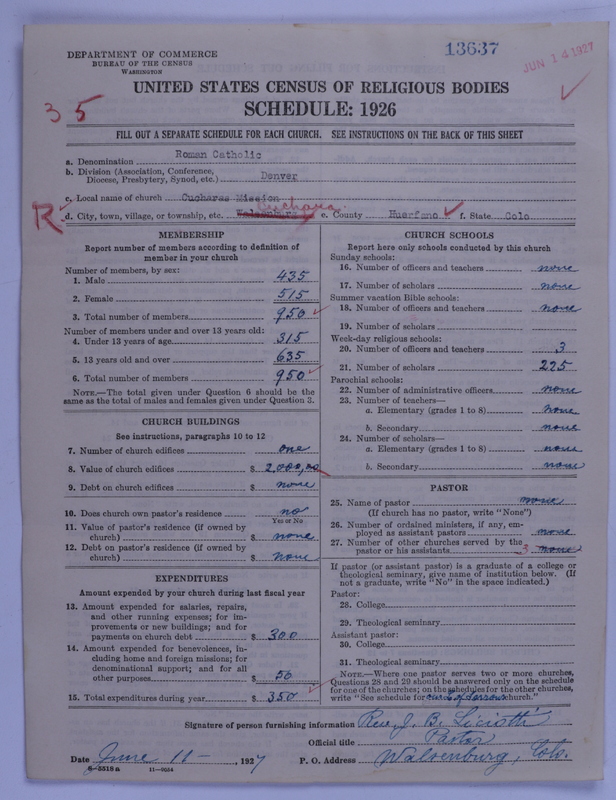 DEPARTMENT OF COMMERCE
BUREAU OF THE CENSUS
WASHINGTON
13637
JUN 14 1927
UNITED STATES CENSUS OF RELIGIOUS BODIES
SCHEDULE: 1926
35
FILL OUT A SEPARATE SCHEDULE FOR EACH CHURCH. SEE INSTRUCTIONS ON THE BACK OF THIS SHEET
a. Denomination Roman Catholic
b. Division (Association, Conference, Diocese, Presbytery, Synod, etc.) Denver
c. Local name of church Cucharas Mission
R d. City, town, village, or township, etc. Walsenburg Cuchara. e. County Huerfano f. State Colo
MEMBERSHIP
Report number of members according to definition of
member in your church
Number of members, by sex:
1. Male 435
2. Female 515
3. Total number of members 950
Number of members under and over 13 years old:
4. Under 13 years of age 315
5. 13 years old and over 635
6. Total number of members 950
NOTE.—The total given under Question 6 should be the
same as the total of males and females given under Question 3.
CHURCH BUILDINGS
See instructions, paragraphs 10 to 12
7. Number of church edifices one
8. Value of church edifices $ 2,000,00
9. Debt on church edifices $ none
10. Does church own pastor's residence? no
Yes or No
11. Value of pastor's residence (if owned by
church) $ none
12. Debt on pastor's residence (if owned by
church) $ none
EXPENDITURES
Amount expended by your church during last fiscal year
13. Amount expended for salaries, repairs,
and other running expenses; for im-
provements or new buildings; and for
payments on church debt $ 300
14. Amount expended for benevolences, in-
cluding home and foreign missions; for
denominational support; and for all
other purposes $ 50
15. Total expenditures during year $ 350
CHURCH SCHOOLS
Report here only schools conducted by this church
Sunday schools:
16. Number of officers and teachers none
17. Number of scholars none
Summer vacation Bible schools:
18. Number of officers and teachers none
19. Number of scholars
Week-day religious schools:
20. Number of officers and teachers 3
21. Number of scholars 225
Parochial schools:
22. Number of administrative officers none
23. Number of teachers—
a. Elementary (grades 1 to 8) none
b. Secondary none
24. Number of scholars—
a. Elementary (grades 1 to 8) none
b. Secondary none
PASTOR
25. Name of pastor none
(If church has no pastor, write "None")
26. Number of ordained ministers, if any, em-
ployed as assistant pastors none
27. Number of other churches served by the
pastor or his assistants 3 none
If pastor (or assistant pastor) is a graduate of a college or
theological seminary, give name of institution below. (If
not a graduate, write "No" in the space indicated.)
Pastor:
28. College
29. Theological seminary
Assistant pastor:
30. College
31. Theological seminary
NOTE.—Where one pastor serves two or more churches,
Questions 28 and 29 should be answered only on the schedule
for one of the churches; on the schedules for the other churches,
write "See schedule for church."
Signature of person furnishing information Rev. J. B. Liciotti
Official title Pastor
Date June 11 —, 1927 P. O. Address Walsenburg, Colo.
8-5518a 11-9054